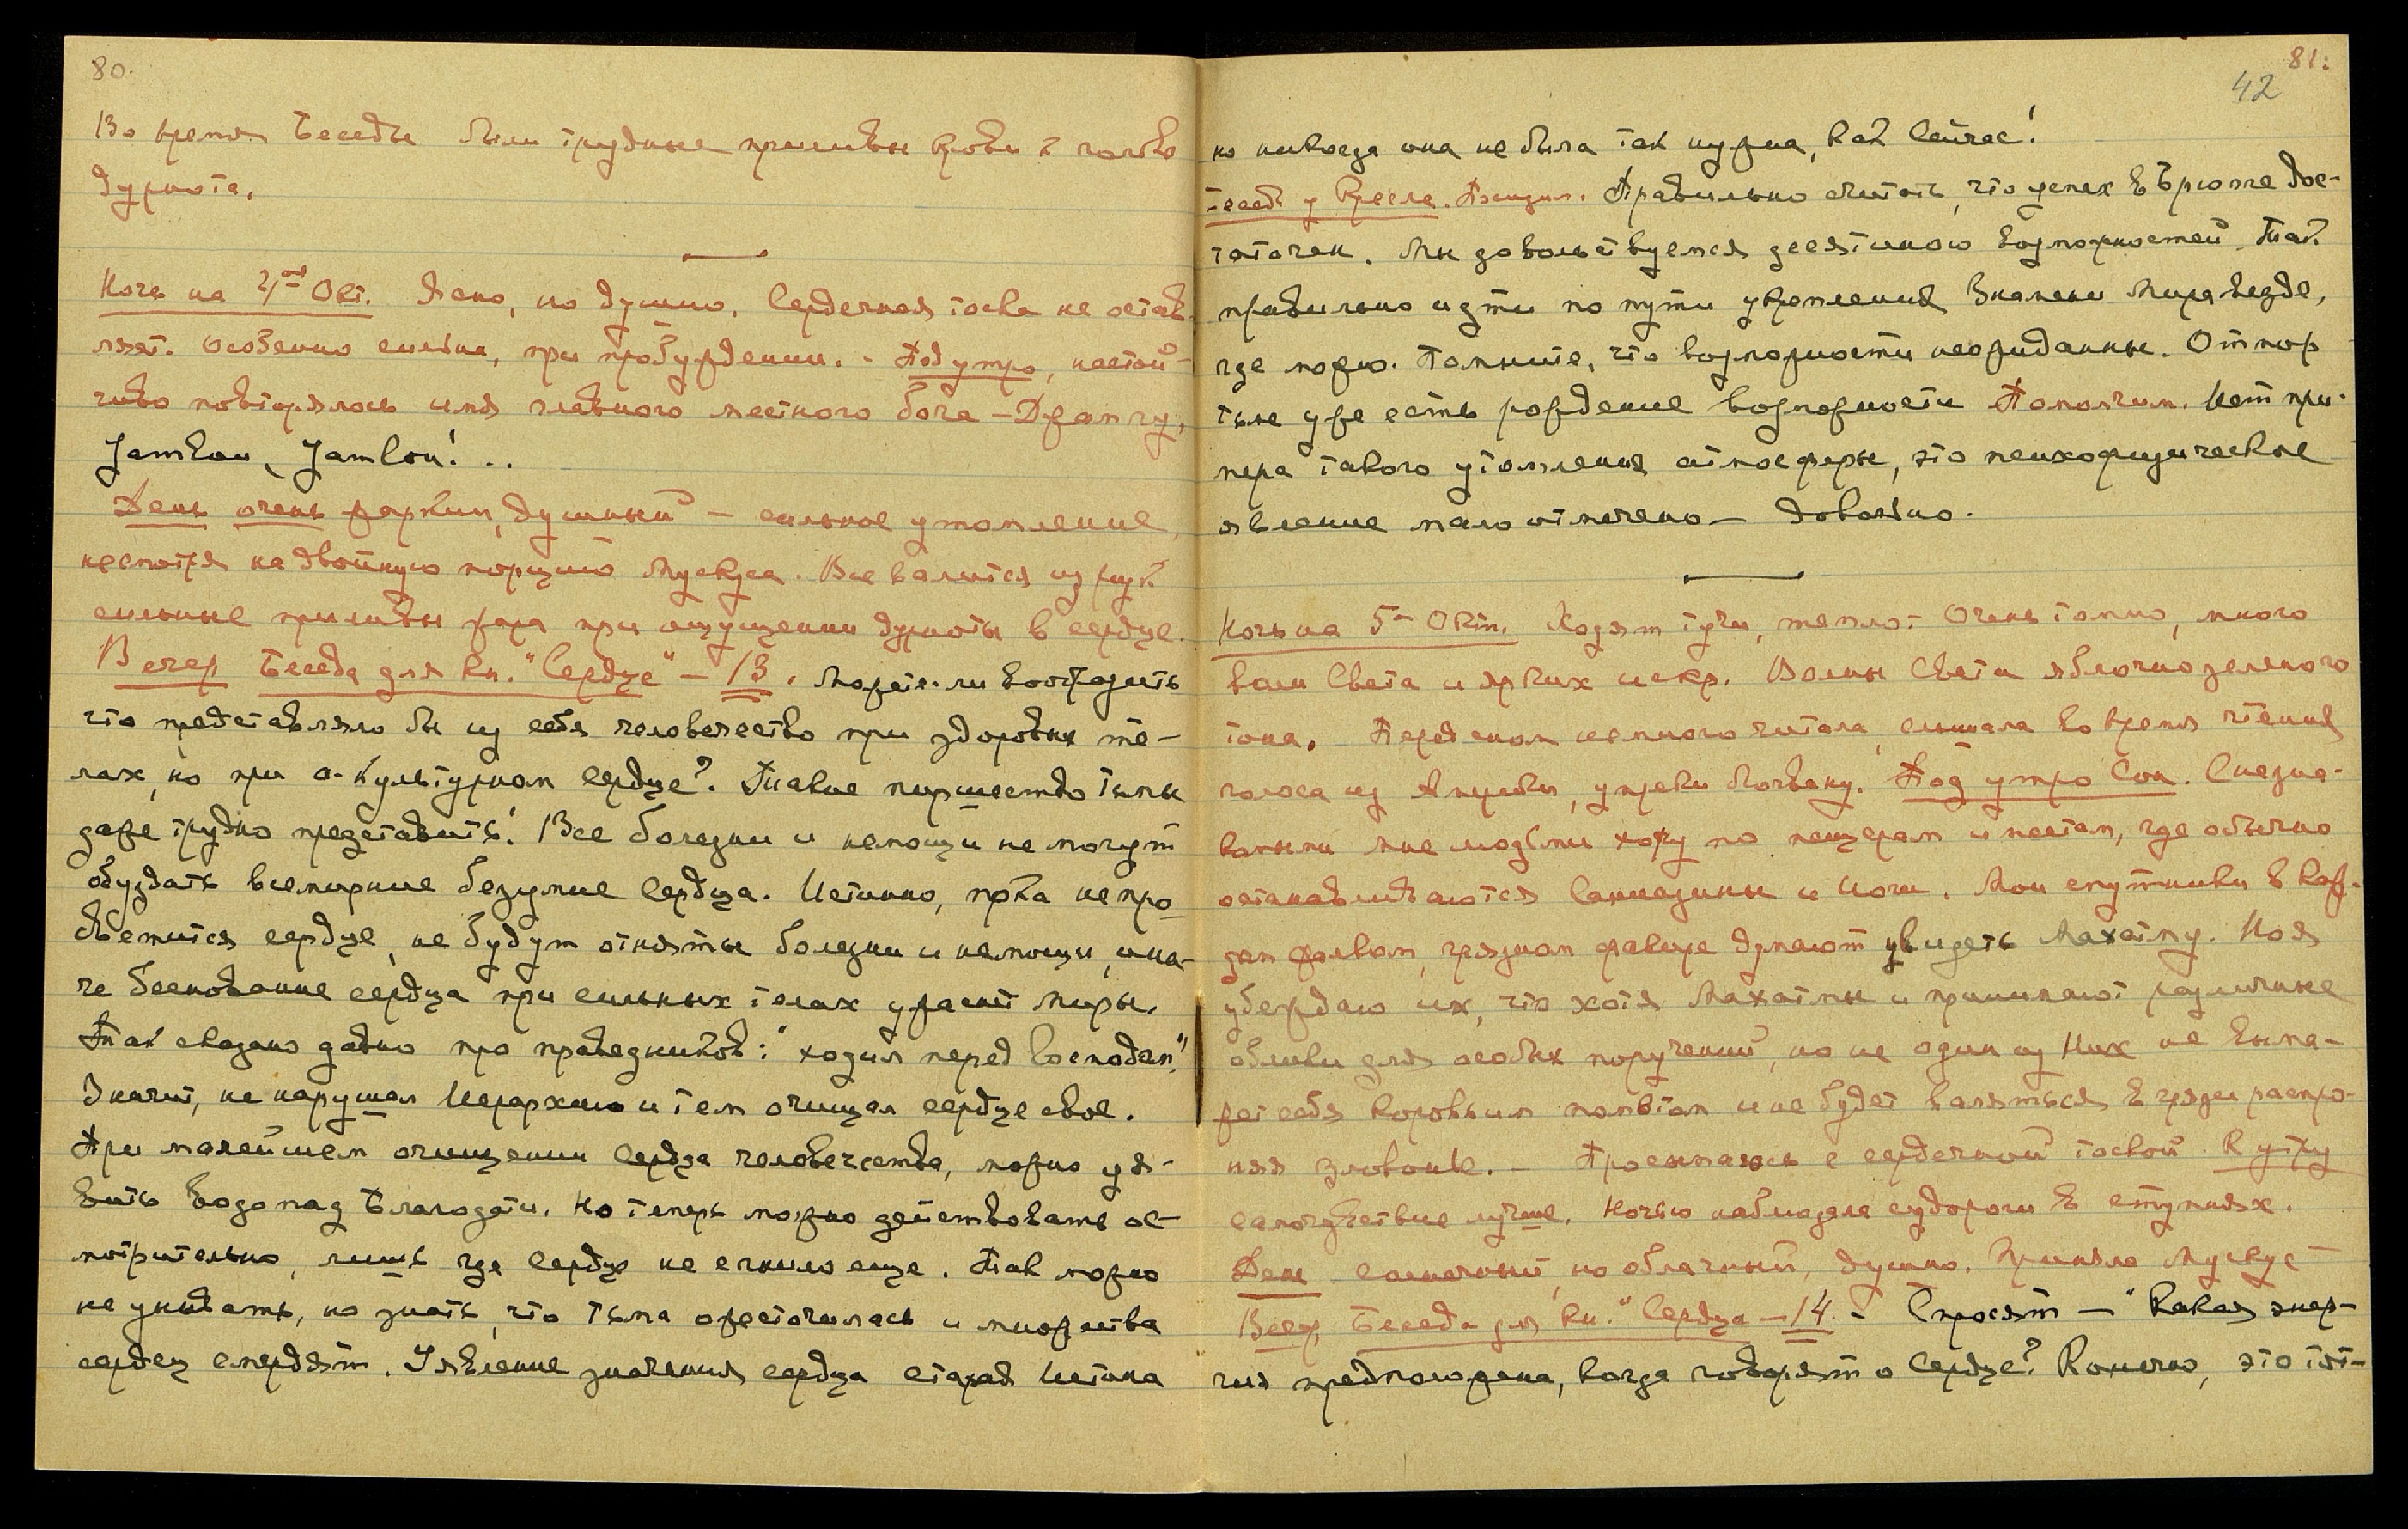 80.
Во время Беседы были трудные приливы крови к голове
дурнота.
Ночь на 4ое Окт. Ясно, но душно. Сердечная тоска не остав-
ляет. Особенно сильна, при пробуждении. - Под утро, настой-
чиво повторялось имя главного местного бога - Джамлу,
День очень жаркий, душный - сильное утомление,
несмотря на двойную порцию Мускуса. Все валится из рук
сильные приливы жара при ощущении дурноты в сердце.
Вечер Беседа для кн. "Сердце" - 13. Можете-ли вообразить
что представляло бы из себя человечество при здоровых те-
лах, но при а-культурном сердце? Такое пиршество тьмы
даже трудно представить! Все болезни и немощи не могут
обуздать всемирные безумие сердца. Истинно, пока не про-
светится сердце, не будут отняты болезни и немощи, ина-
че беснование сердца при сильных телах ужаснет миры.
Так сказано давно про праведников: "ходил перед Господом",
Значит, не нарушал Иерархию и тем очищал сердце свое.
При малейшем очищении сердца человечества, можно уя-
вить водопад Благодати. Но теперь можно действовать ос-
мотрительно, лишь где сердце не сгнило еще. Так можно
не унывать, но знать, что тьма ожесточилась и множества
сердец смердят. Уявление значения сердца старая Истина
81:
42
но никогда она не была так нужна, как сейчас!
Правильно считать, что успех в Брюгге дос-
таточен. Мы довольствуемся десятиною возможностей. Так
правильно идти по пути укрепления Знамени Мира везде,
где можно. Помните, что возможности неожиданны. Отпор
тьме уже есть рождение возможности Помолчим. Нет при-
мера такого утомления атмосферы, это психофизическое
явление мало отмечено - Довольно.
Ночь на 5- Окт. Ходят тучи, тепло - Очень томно, много
волн Света и ярких искр. Волны Света яблочно зеленого
тона. Перед сном немного читала, слышала во время чтения
голоса из Америки, упреки Логвану. Под утро Сон. С незна-
комыми мне людьми хожу по пещерам и местам, где обычно
останавливаются Саниазины и Иоги. Мои спутники в каж-
дом жалком, грязном факире думают увидеть Махатму. Но я
убеждаю их, что хотя Махатмы и принимают различные
облики для особых поручений, но не один из Них не выма-
жет себя коровьим пометом и не будет валяться в грязи распро-
няя зловонье. - Просыпаюсь с сердечной тоской. К утру
самочувствие лучше. Ночью наблюдала судороги в ступнях.
День солнечный, но облачный, душно. Приняла Мускус -
Вечер Беседа для кн. "Сердце - 14 - Спросят - "Какая энер-
гия предположена, когда говорят о Сердце? Конечно, это тот-